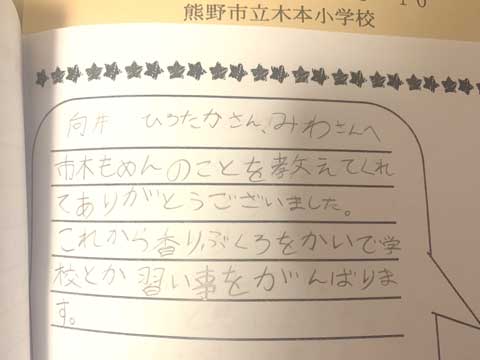 10
熊野市立木本小学校
向井 ひろたかさん、みわさんへ
市木もめんのことを教えてくれ
てありがとうございました。
これから香りぶくろをかいで学
校とか習い事をがんばりま
す。